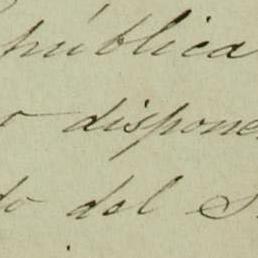 pública
o dispone
do del S